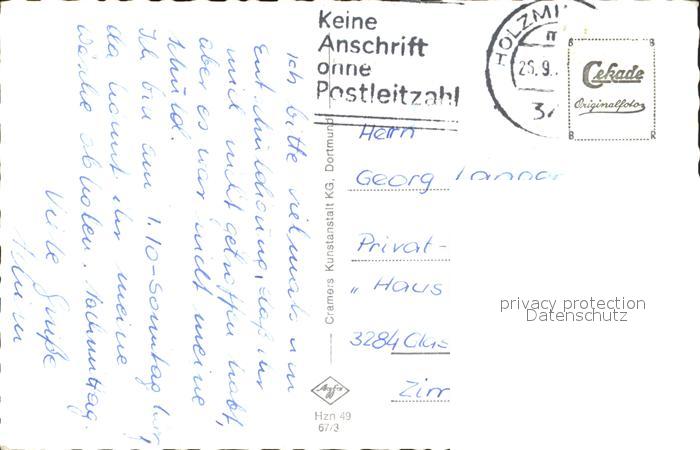 Keine
Anschrift
ohne
Postleitzahl
HOLZMI
26.9.
Cekade
Originalfoto
Ich bitte vielmals um
Entschuldigung, daß ihr
mich nicht getroffen habt,
aber es war nicht meine
Schuld.
Ich bin am 1.10-Sonntag hier,
da könnt ihr meine
Wäsche abholen. Nachmittag.
Viele Grüße
Cramers Kunstanstalt KG, Dortmund
Agfa
Hzn 49
67/3
Herrn
Georg
Privat-
„Haus
3284
Zim
privacy protection
Datenschutz